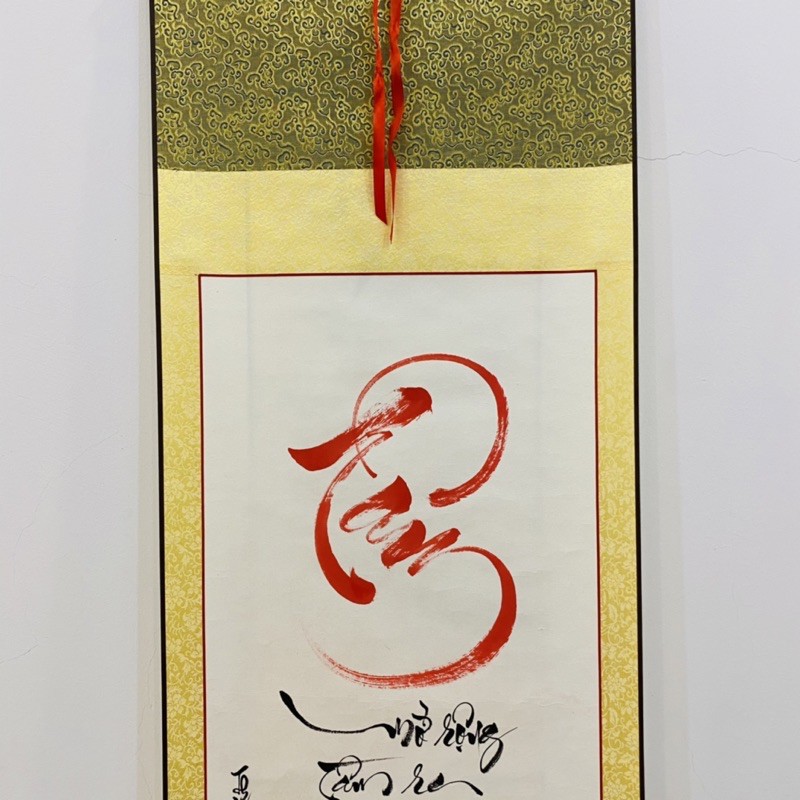 Tâm
mở rộng
Tâm ra